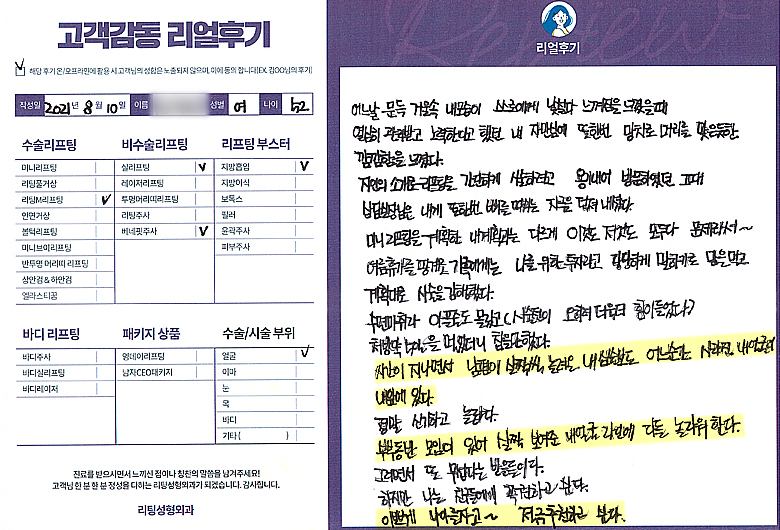 고객감동 리얼후기
해당 후기 온/오프라인에 활용 시 고객님의 성함은 노출되지 않으며, 이에 동의 합니다(EX. 김OO님의 후기)
작성일 2021년 8월 10일 이름 성별 여 나이 52
수술리프팅
미니리프팅
리팅풀거상
리팅M리프팅 ✓
안면거상
볼턱리프팅
미니브이리프팅
반투명 머리띠 리프팅
상안검 & 하안검
엘라스티꿈
비수술리프팅
실리프팅 ✓
레이저리프팅
투명머리띠리프팅
리팅주사
베네핏주사 ✓
리프팅 부스터
지방흡입 ✓
지방이식
보톡스
필러
윤곽주사
피부주사
바디 리프팅
바디주사
바디실리프팅
바디레이저
패키지 상품
영데이리프팅
남자CEO패키지
수술/시술 부위
얼굴 ✓
이마
눈
목
바디
기타( )
진료를 받으시면서 느끼신 점이나 칭찬의 말씀을 남겨주세요!
고객님 한 분 한 분 정성을 다하는 리팅성형외과가 되겠습니다. 감사합니다.
리팅성형외과
Review
리얼후기
어느날 문득 거울속 내모습이 스스로에게 낯설다 느껴짐을 느꼈을때
열심히 관리받고 노력한다고 했던 내 자만심에 또한번 망치로 머리를 맞은듯한
깜깜함을 느꼈다.
지인의 소개로 리프팅을 간단하게 상담하려고 용기내어 방문하였던 그때
상담실장님은 내게 또한번 뼈를 때리는 자극을 던져 내셨다.
미니리프팅을 계획한 내계획과는 다르게 이것도 저것도 모두다 문제라서~
여름휴가를 핑계로 가족에게는 나를 위한 투자라고 당당하게 말하기로 맘을 먹고
계획대로 시술을 강행했다.
수면마취라 아픔도 몰랐고(시술진이 오히려 더욱더 힘이들었다?)
처방약 노인을 먹었더니 참을만했다.
시간이 지나면서 남편이 살짝씩 놀려온 내 심술보도 어느순간 사라진 내얼굴이
내앞에 있다.
정말 신기하고 놀랍다.
부부동반 모임이 있어 살짝 보여준 내얼굴 라인에 다들 놀라워 한다.
그러면서 또 부럽다는 반응들이다.
하지만 나는 친구들에게 추천하고 싶다.
이쁘게 나이들자고~ 적극추천하고 싶다.